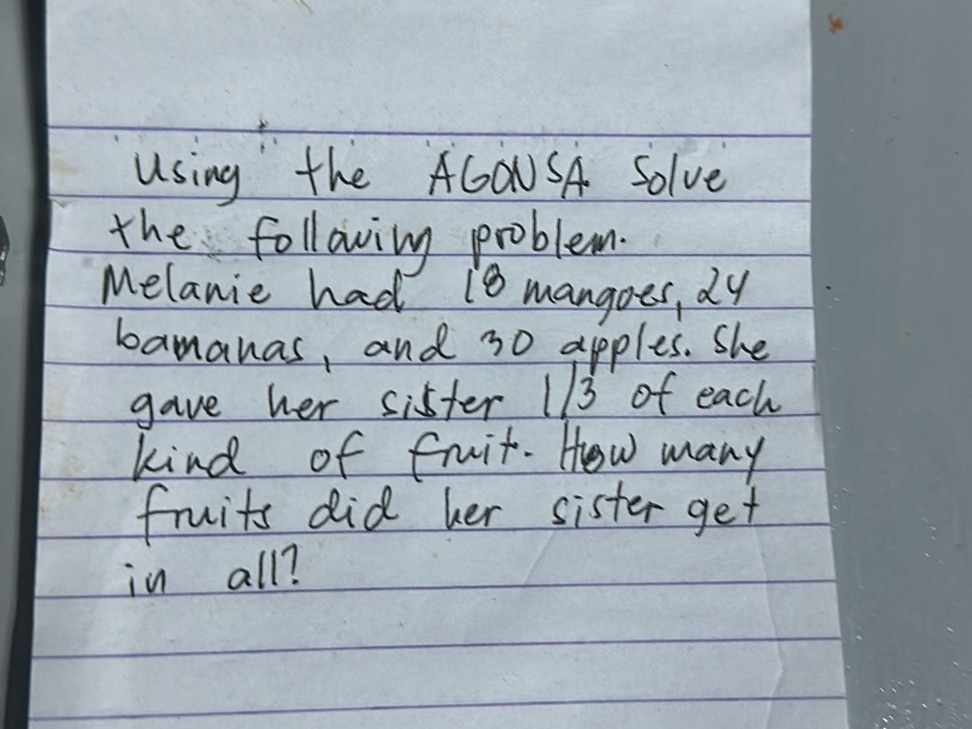 Using the AGONSA. Solve
the following problem.
Melanie had 18 mangoes, 24
bamanas, and 30 apples. She
gave her sister 1/3 of each
kind of fruit. How many
fruits did her sister get
in all?